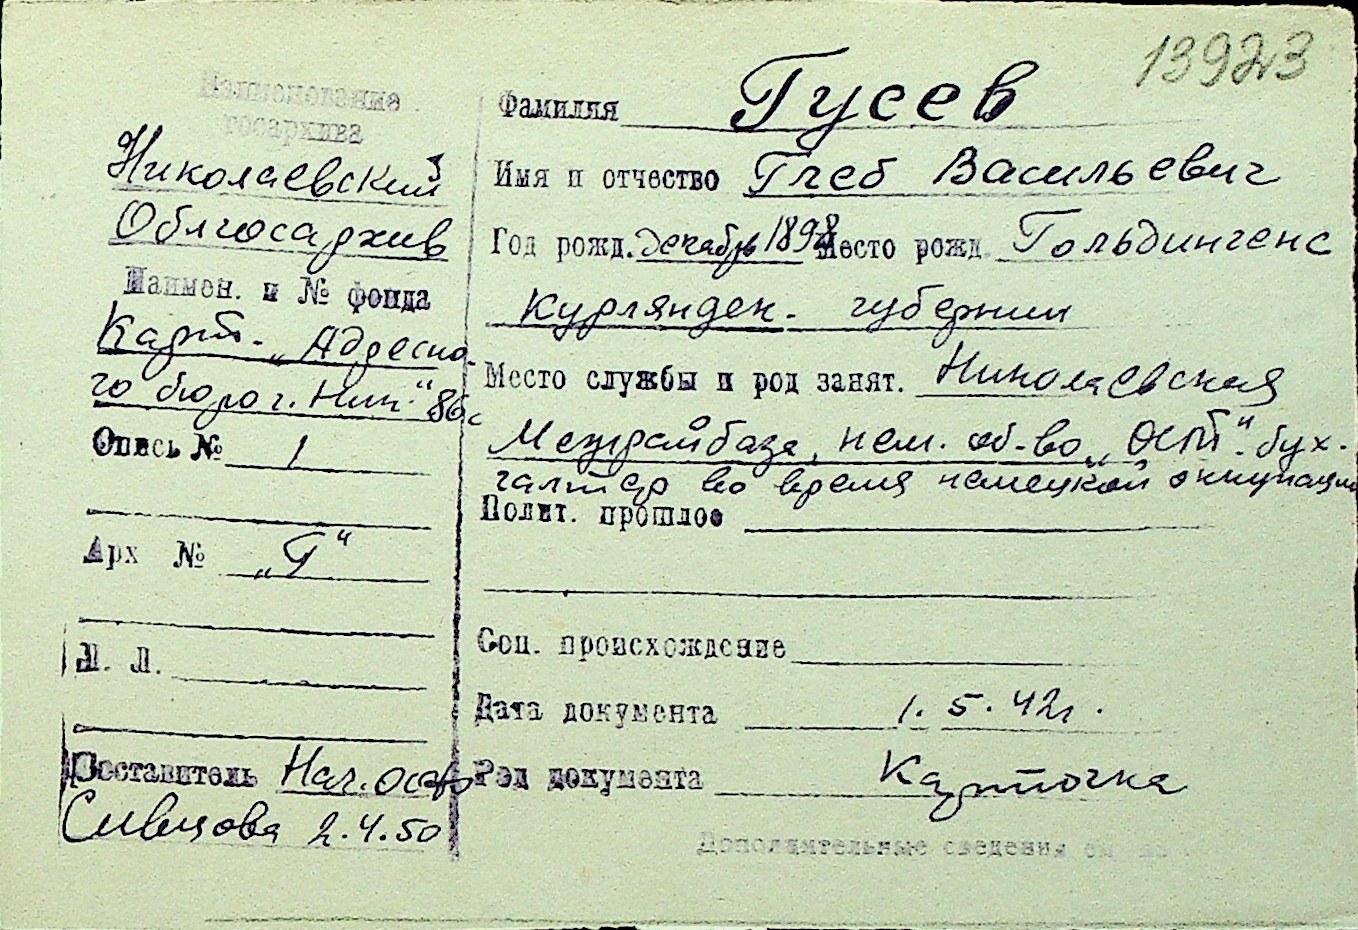 13923
Наименование
госархива
Николаевский
Облгосархив
Наимен. и № фонда
Карт. „Адресно-
го бюро г. Ник." 86с
Опись № 1
Арх № „Г"
К. Л.
Составитель Нач. осаф
Сивцова 2.4.50
Фамилия Гусев
Имя и отчество Глеб Васильевич
Год рожд. декабрь 1898 Место рожд. Гольдингенс
Курляндск. губернии
Место службы и род занят. Николаевская
Межрайбаза, нем. об-во „Ост". бух-
галтер во время немецкой оккупации
Полит. прошлое
Соц. происхождение
Дата документа 1.5.42г.
Род документа Карточка
Дополнительные сведения см на